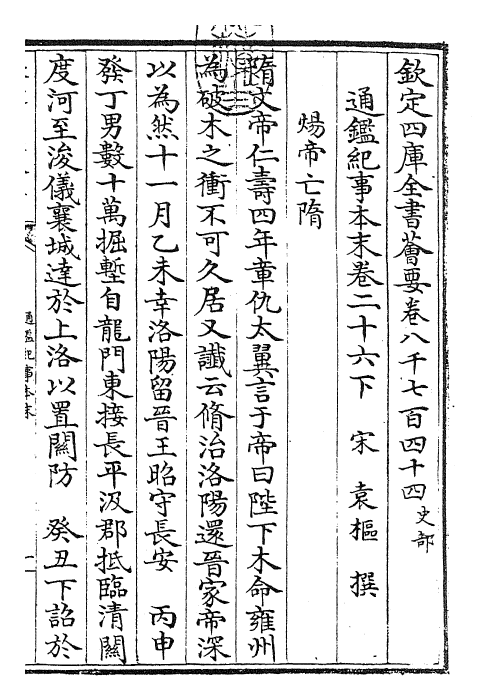 欽定四庫全書薈要卷八千七百四十四史部
通鑑紀事本末卷二十六下　宋　袁樞　撰
煬帝亡隋
隋文帝仁壽四年章仇太翼言于帝曰陛下木命雍州
為破木之衝不可久居又讖云脩治洛陽還晉家帝深
以為然十一月乙未幸洛陽留晉王昭守長安　丙申
發丁男數十萬掘塹自龍門東接長平汲郡抵臨清關
度河至浚儀襄城達於上洛以置關防　癸丑下詔於
通鑑紀事本末
一